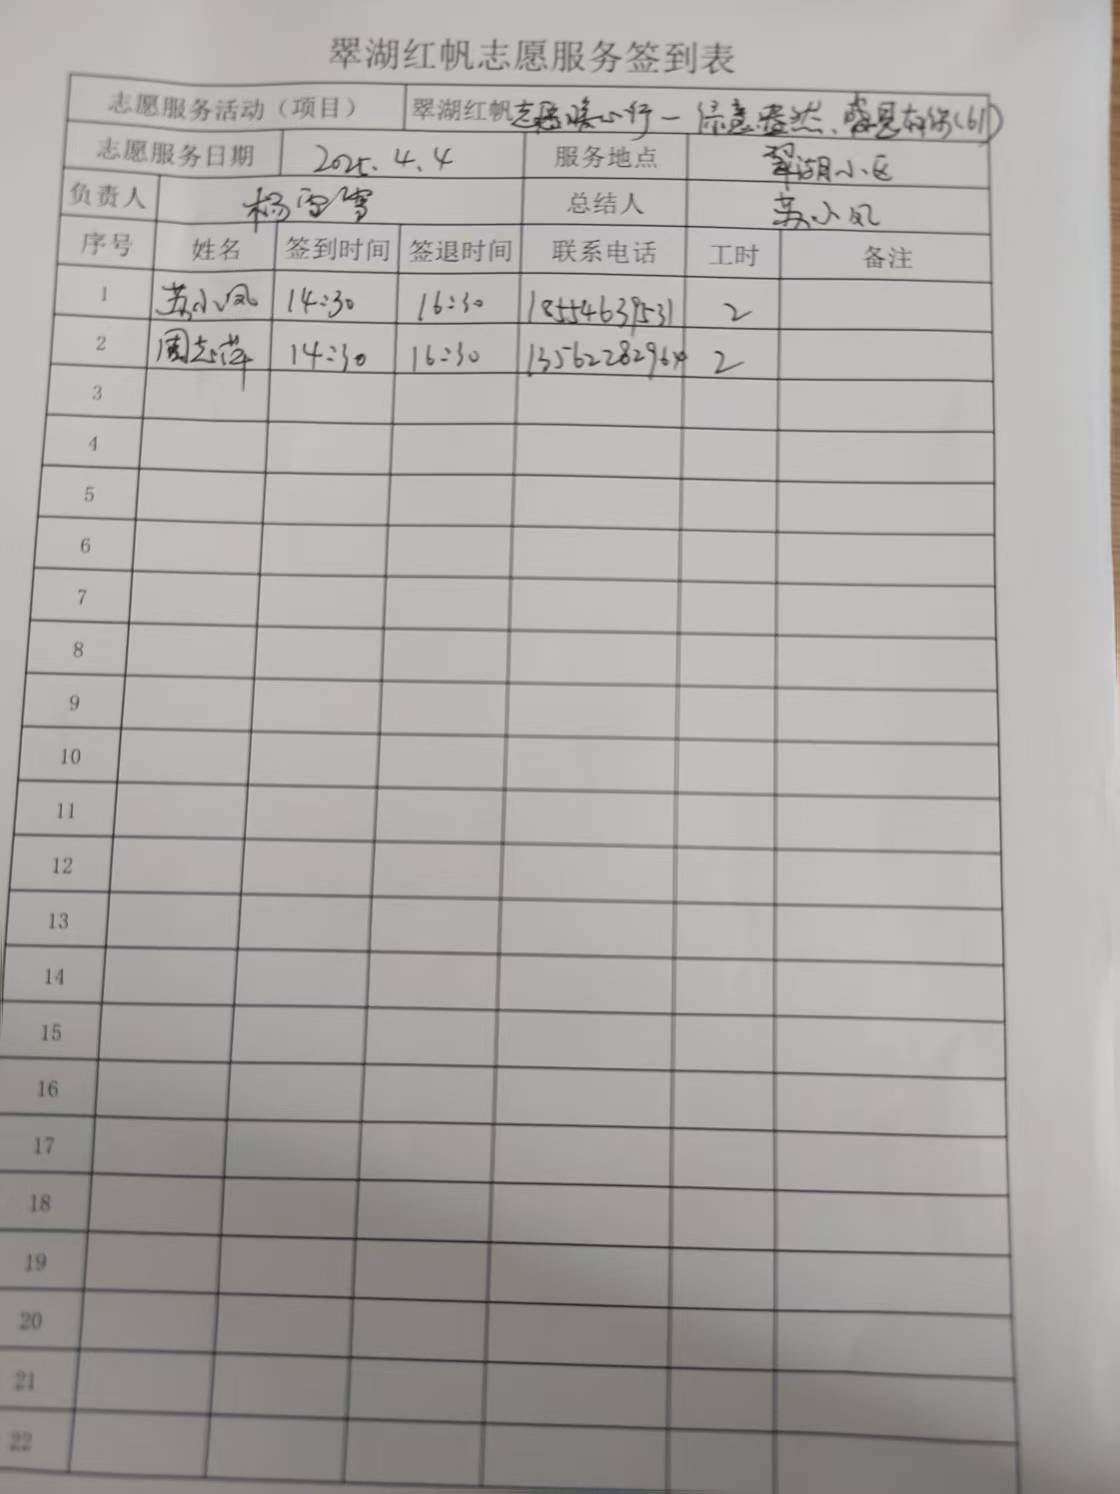 翠湖红帆志愿服务签到表
志愿服务活动（项目） 翠湖红帆志愿暖心行一绿意盎然、盛见有你(61)
志愿服务日期 2025.4.4 服务地点 翠湖小区
负责人 杨雪雪 总结人 苏小凤
序号 姓名 签到时间 签退时间 联系电话 工时 备注
1 苏小凤 14:30 16:30 18554639531 2
2 周志萍 14:30 16:30 2
3
4
5
6
7
8
9
10
11
12
13
14
15
16
17
18
19
20
21
22